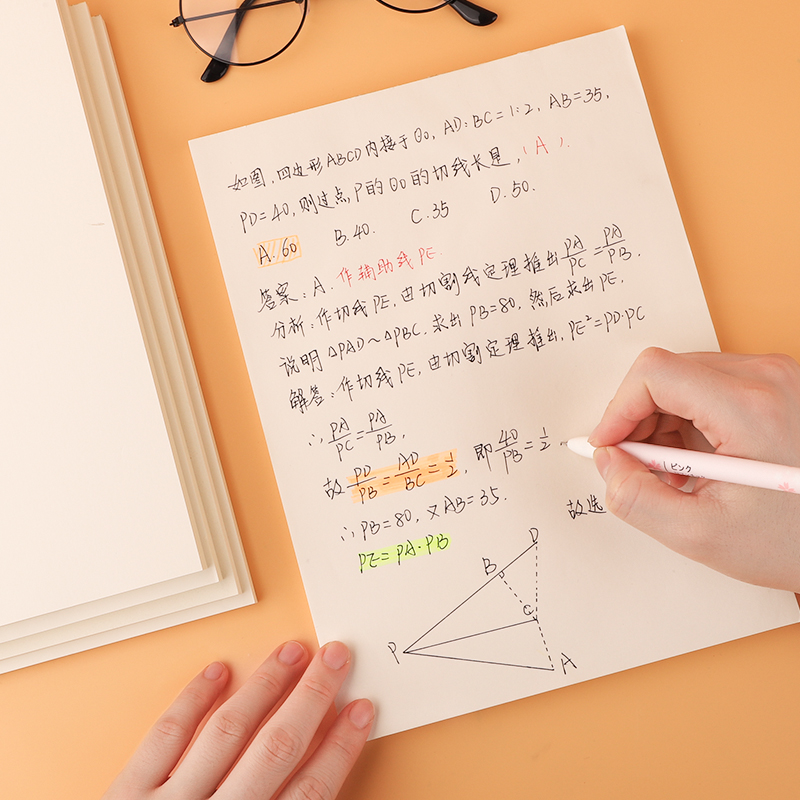 如图,四边形ABCD内接于⊙o,AD:BC=1:2,AB=35,
PD=40,则过点P的⊙o的切线长是,(A).
A.60 B.40. C.35 D.50.
答案:A.作辅助线PE.
分析:作切线PE,由切割线定理推出PA/PC=PA/PB.
说明△PAD~△PBC.求出PB=80,然后求出PE.
解答:作切线PE,由切割定理推出,PE²=PD·PC
∴PA/PC=PA/PB,
故PD/PB=AD/BC=1/2,即40/PB=1/2,
∴PB=80,又AB=35.
故选
PE=PA·PB
D
B
C
P
A
ピンク